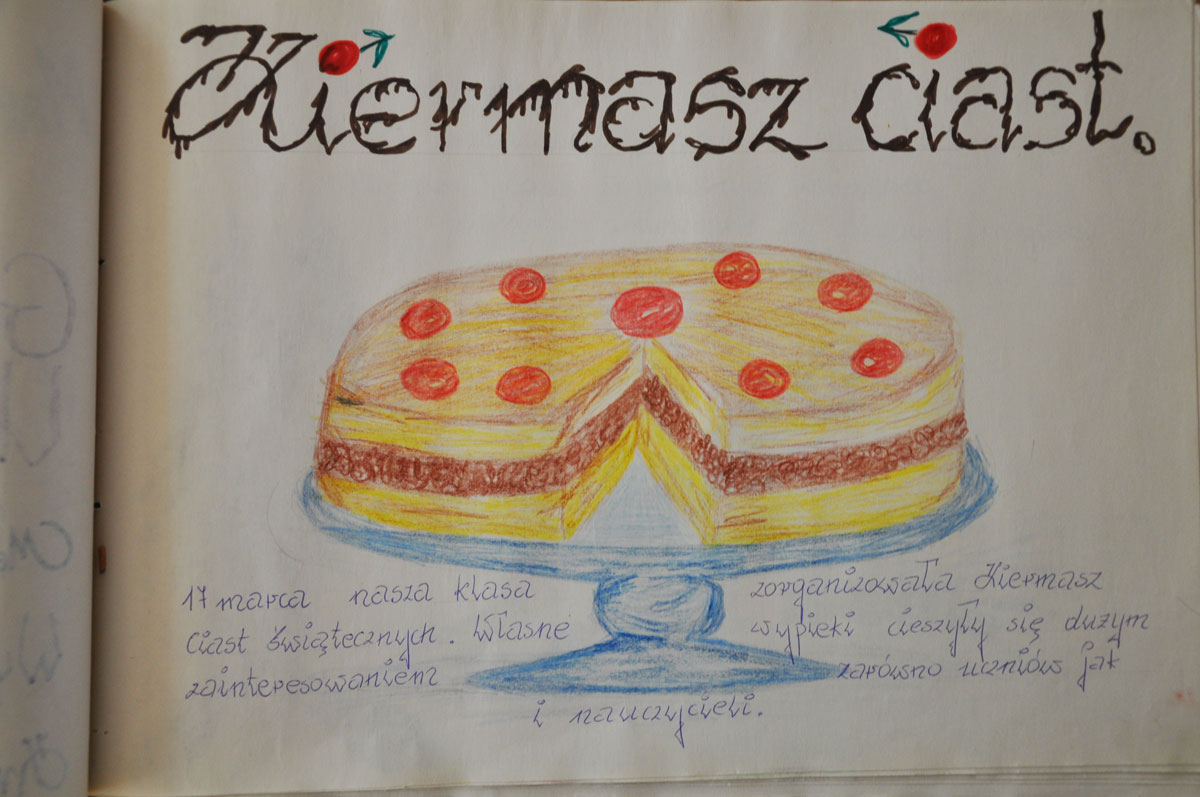 Kiermasz ciast.
17 marca nasza klasa zorganizowała Kiermasz
Ciast Świątecznych. Własne wypieki cieszyły się dużym
zainteresowaniem zarówno uczniów jak
i nauczycieli.